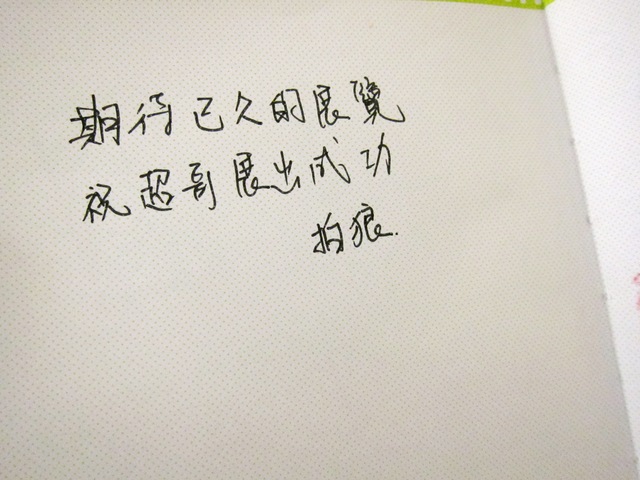 期待已久的展覽
祝超哥展出成功
拍狼.